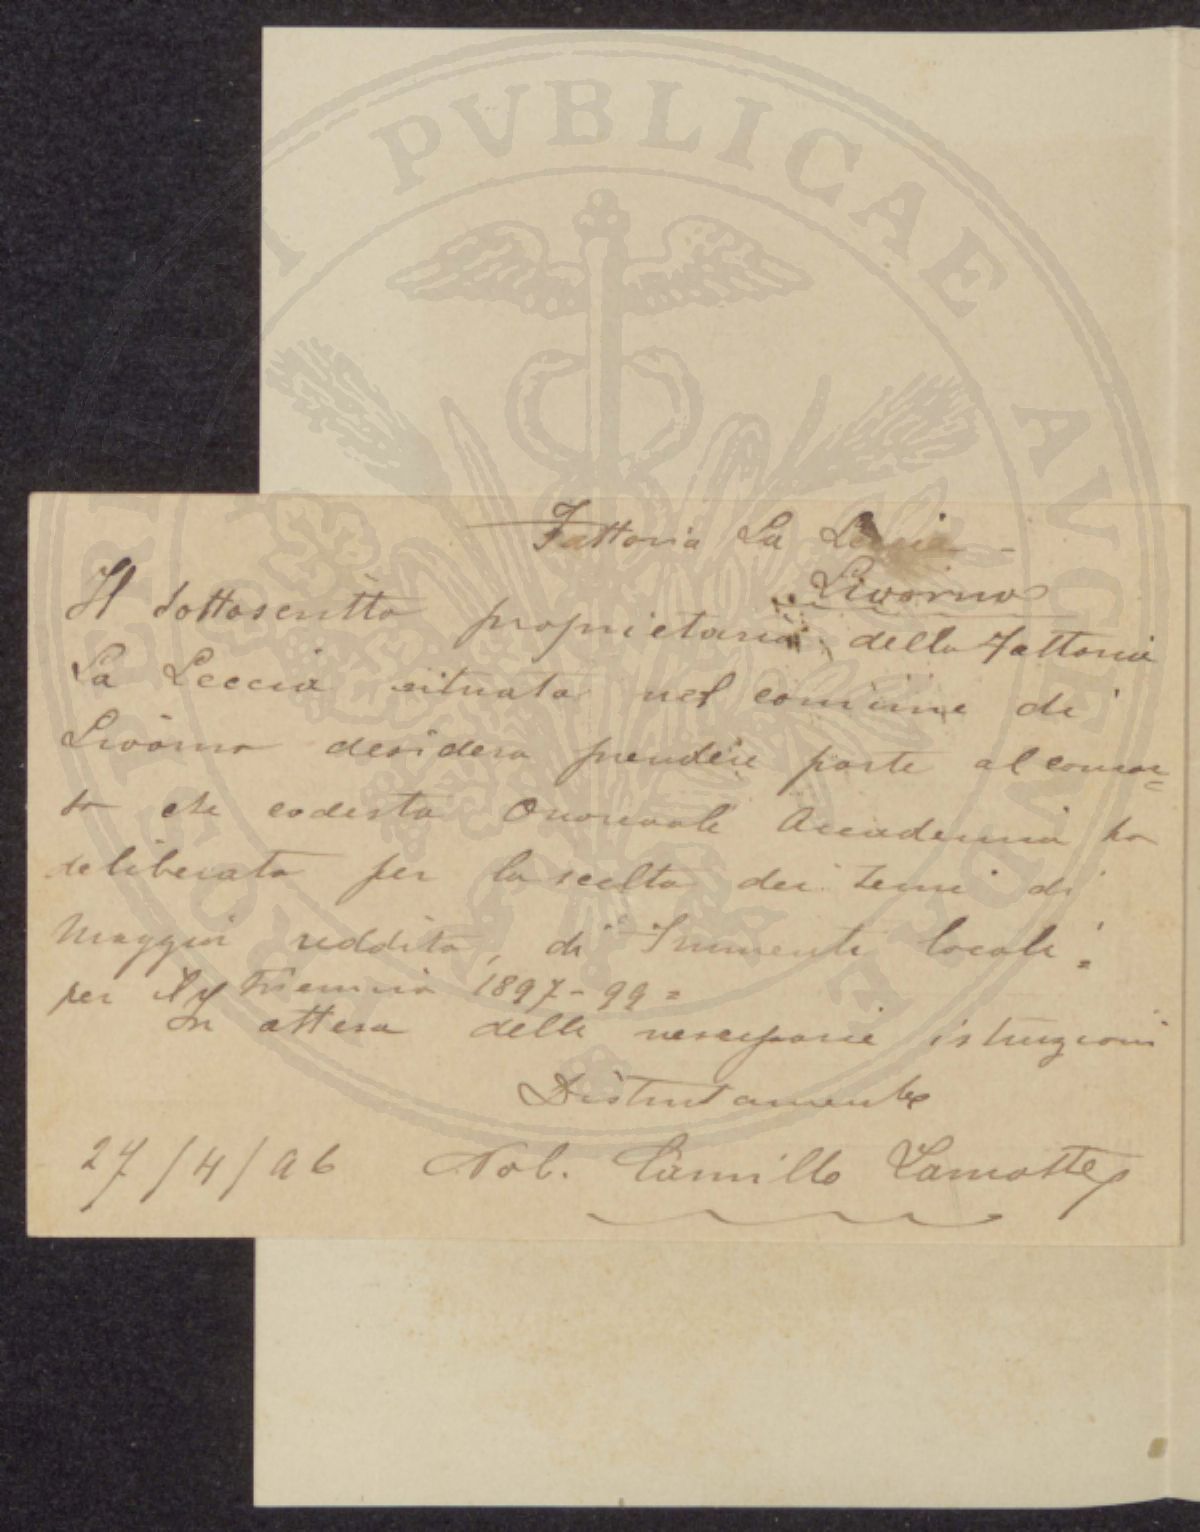 PVBLICAE AVGENDAE
Fattoria La Leccia -
Livorno
Il sottoscritto proprietario della Fattoria
La Leccia situata nel comune di
Livorno desidera prendere parte al concor=
so che codesta Onorevole Accademia ha
deliberato per la scelta dei semi di
Maggior reddito, di Frumenti locali =
per il triennio 1897-99 =
In attesa delle necessarie istruzioni
Distintamente
27/4/96 Nob. Camillo Lamotte